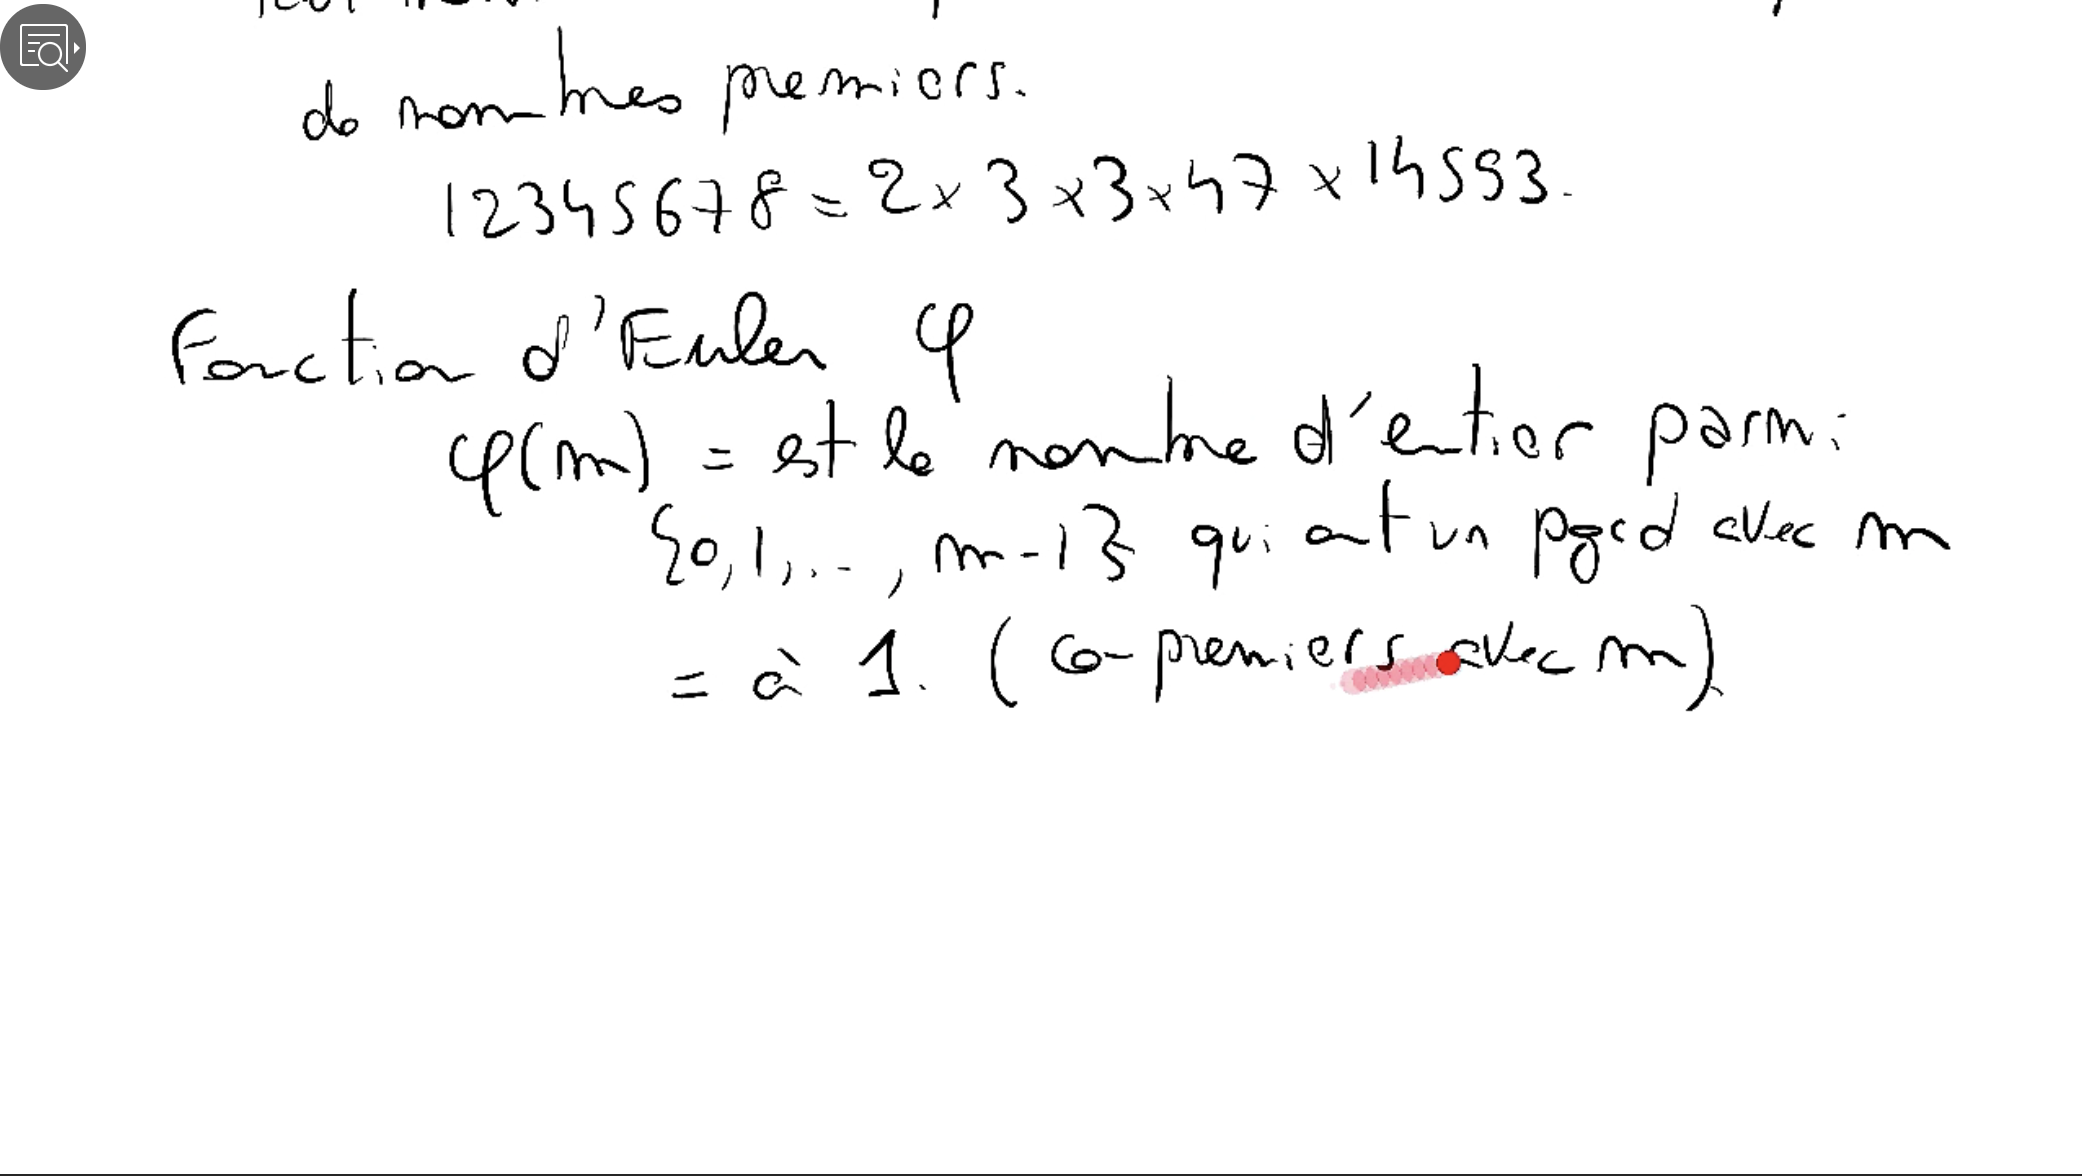 de nombres premiers.
12345678 = 2 x 3 x 3 x 47 x 14593.
Fonction d'Euler φ
φ(m) = est le nombre d'entier parmi
{0, 1, ..., m-1} qui ont un pgcd avec m
= à 1. (co-premiers avec m).